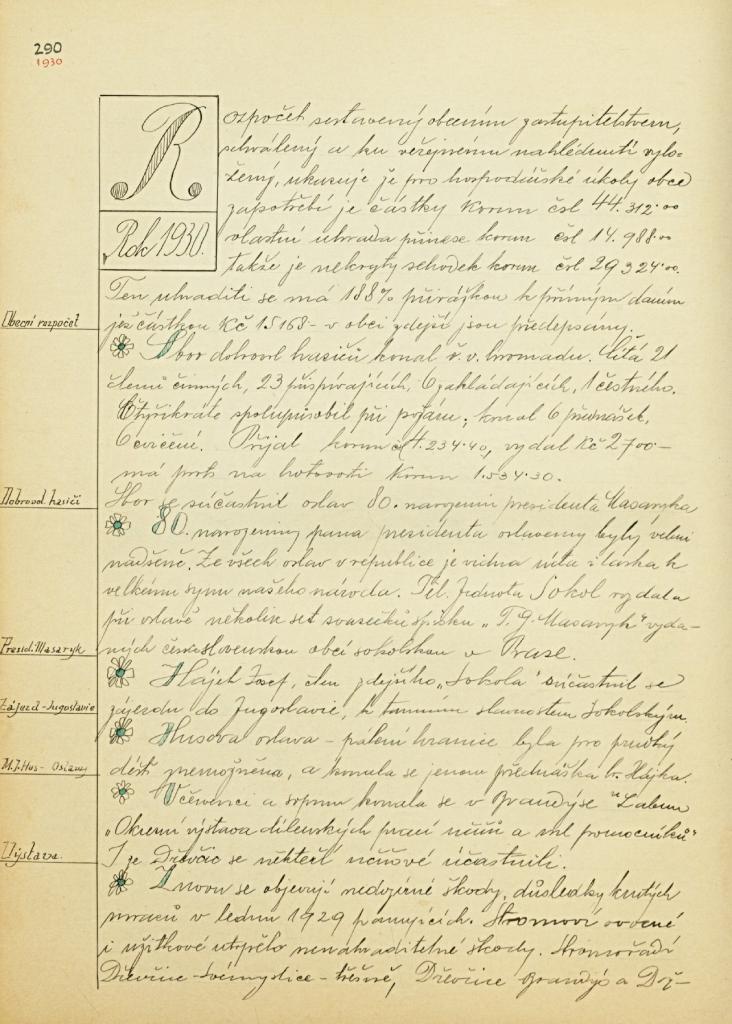 290
1930
Rozpočet sestavený obecním zastupitelstvem,
schválený a ku veřejnému nahlédnutí vylo-
žený, ukazuje že pro hospodářské úkoly obce
zapotřebí je částky Korun čsl 44.312·00
Rok 1930.
vlastní úhrada přinese korun čsl 14.988·00
takže je nekrytý schodek korun čsl 29324·00.
Ten uhraditi se má 188% přirážkou k přímým daním
jež částkou Kč 15168- v obci zdejší jsou předepsány.
Obecní rozpočet
Sbor dobrovol. hasičů konal ř. v. hromadu. Čítá 21
členů činných, 23 přispívajících, 6 zakládajících, 1 čestného.
Čtyřikráte spolupůsobil při požáru; konal 6 přednášek,
6 cvičení. Přijal korun čsl 4.234·40, vydal Kč 2700-
má proto na hotovosti Korun 1.534·30.
Dobrovol. hasiči
Sbor se súčastnil oslav 80. narozenin presidenta Masaryka
80. narozeniny pana presidenta oslaveny byly velmi
nadšeně. Ze všech oslav v republice je vidna úcta i láska k
velkému synu našeho národa. Těl. Jednota Sokol vydala
při oslavě několik set svazečků spisku „T. G. Masaryk" vyda-
ných československou obcí sokolskou v Praze.
Presid. Masaryk
Hájek Josef, člen zdejšího „Sokola" súčastnil se
zájezdu do Jugoslavie, k tamním slavnostem Sokolským.
Zájezd-Jugoslavie
Husova oslava - pálení hranice byla pro prudký
déšť znemožněna, a konala se jenom přednáška br. Hájka.
M. J. Hus - Oslavy
V červenci a srpnu konala se v Brandýse n Labem
„Okresní výstava dílenských prací učňů a ml pomocníků"
I ze Dřevčic se někteří učňové účastnili.
Výstava.
Znovu se objevují nedozírné škody, důsledky krutých
mrazů v lednu 1929 panujících. Stromoví ovocné
i užitkové utrpělo nenahraditelné škody. Stromořadí
Dřevčice-Svémyslice-třešně, Dřevčice Brandýs a Dře-